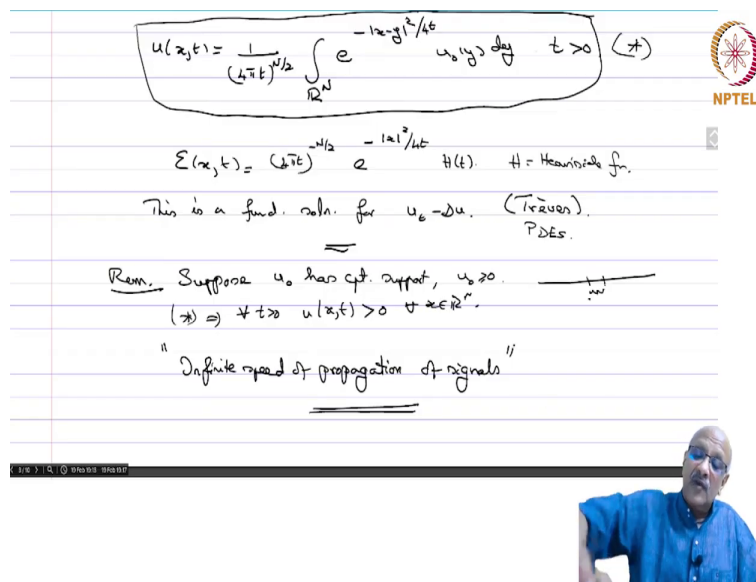 u(x,t) = 1/(4πt)^{N/2} ∫_{ℝ^N} e^{-|x-y|²/4t} u₀(y) dy t>0 (*)
NPTEL
ℰ(x,t) = (4πt)^{-N/2} e^{-|x|²/4t} H(t). H = Heaviside fn.
This is a fund. soln. for u_t - Δu. (Trèves).
PDEs.
Rem. Suppose u₀ has cpt. support, u₀ ≥ 0.
(*) ⇒ ∀ t>0 u(x,t) > 0 ∀ x∈ℝ^N.
"Infinite speed of propagation of signals"
3/10 19 Feb 10:13 19 Feb 10:17